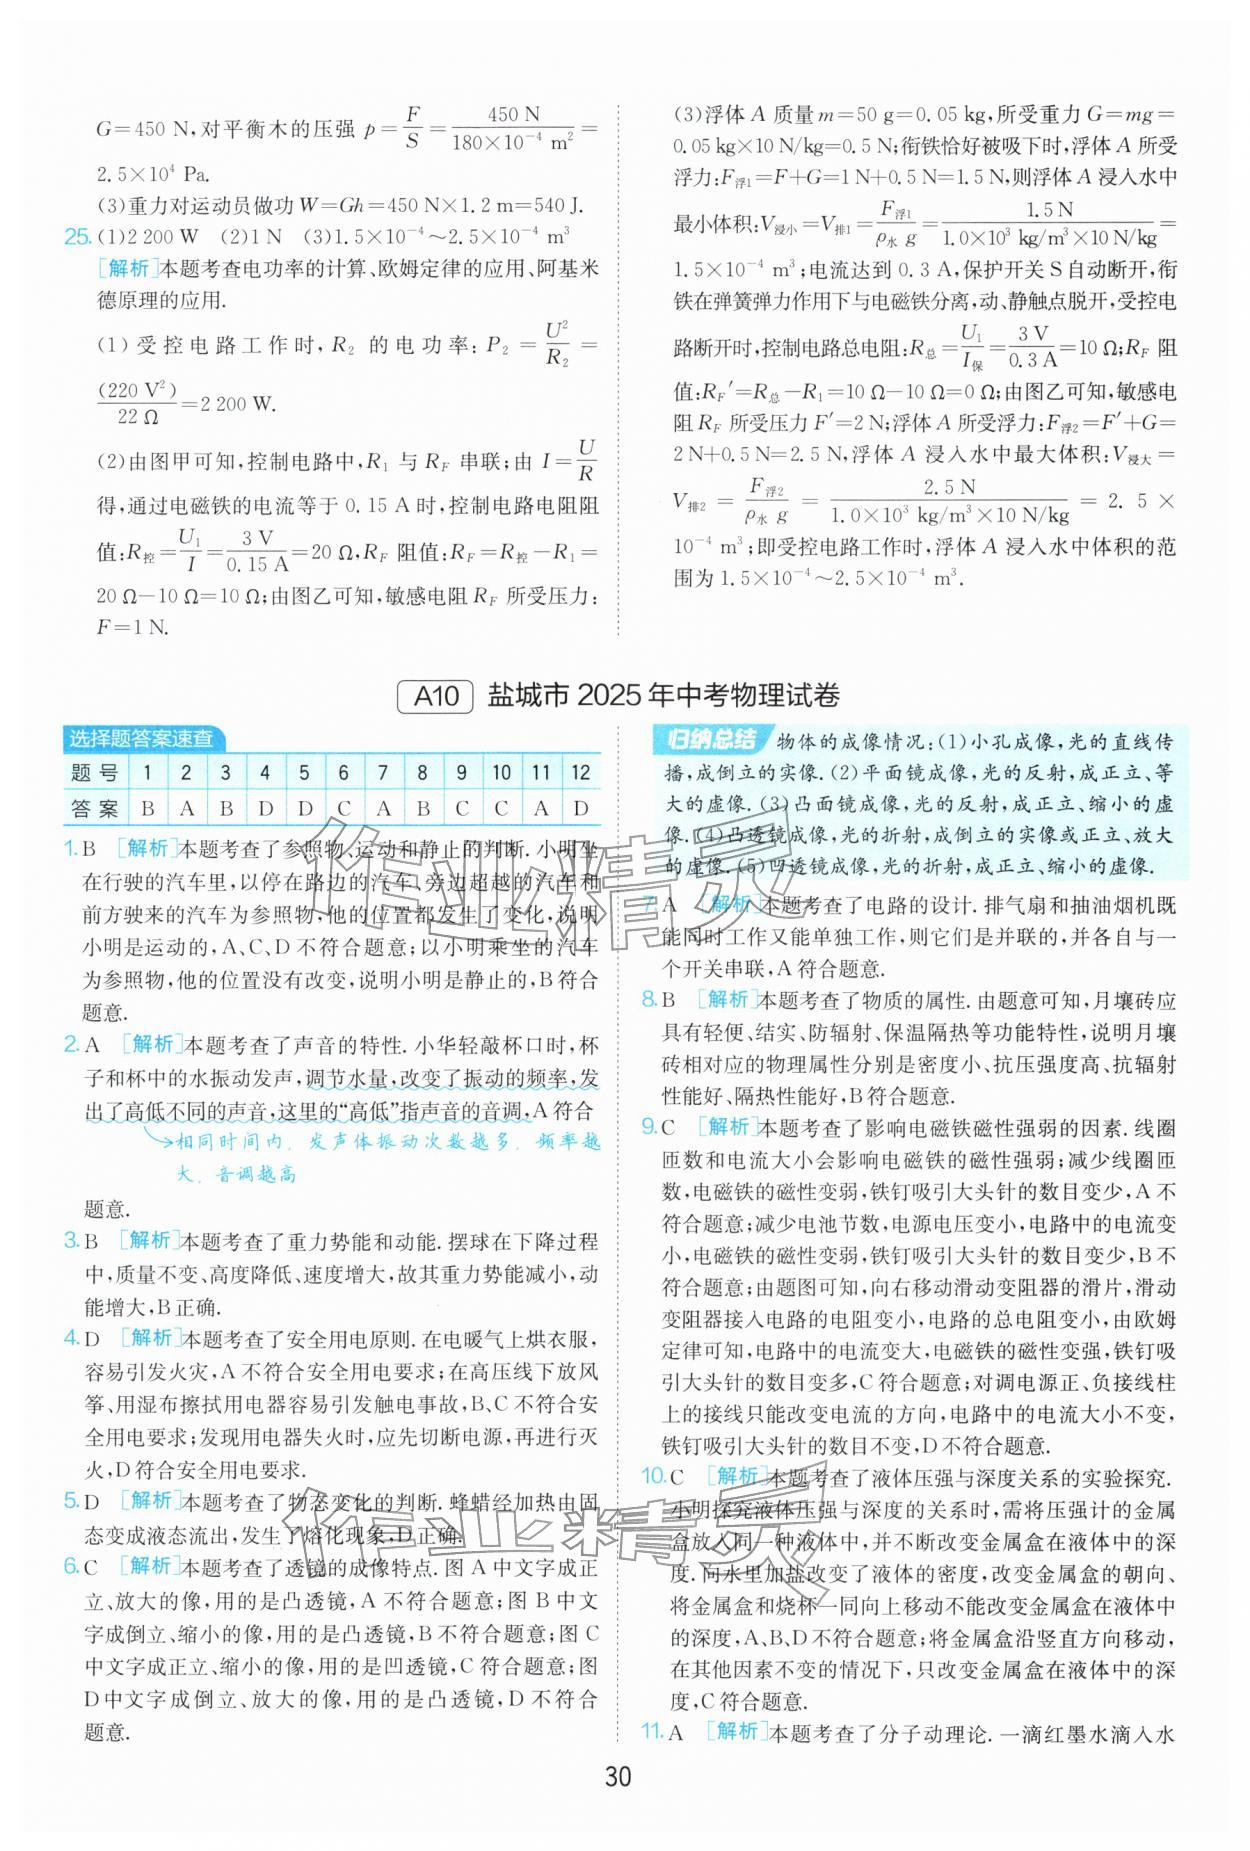 G=450 N,对平衡木的压强 p=F/S=450 N/180×10⁻⁴ m²=
2.5×10⁴ Pa.
(3)重力对运动员做功W=Gh=450 N×1.2 m=540 J.
25. (1)2 200 W (2)1 N (3)1.5×10⁻⁴～2.5×10⁻⁴ m³
[解析]本题考查电功率的计算、欧姆定律的应用、阿基米
德原理的应用.
(1)受控电路工作时,R₂的电功率:P₂=U²/R₂=
(220 V²)/22 Ω=2 200 W.
(2)由图甲可知,控制电路中,R₁与R_F串联;由I=U/R
得,通过电磁铁的电流等于0.15 A时,控制电路电阻阻
值:R控=U₁/I=3 V/0.15 A=20 Ω,R_F阻值:R_F=R控−R₁=
20 Ω−10 Ω=10 Ω;由图乙可知,敏感电阻R_F所受压力:
F=1 N.
(3)浮体A质量m=50 g=0.05 kg,所受重力G=mg=
0.05 kg×10 N/kg=0.5 N;衔铁恰好被吸下时,浮体A所受
浮力:F浮1=F+G=1 N+0.5 N=1.5 N,则浮体A浸入水中
最小体积:V浸小=V排1=F浮1/ρ水g=1.5 N/1.0×10³ kg/m³×10 N/kg=
1.5×10⁻⁴ m³;电流达到0.3 A,保护开关S自动断开,衔
铁在弹簧弹力作用下与电磁铁分离,动、静触点脱开,受控电
路断开时,控制电路总电阻:R总=U₁/I保=3 V/0.3 A=10 Ω;R_F阻
值:R_F′=R总−R₁=10 Ω−10 Ω=0 Ω;由图乙可知,敏感电
阻R_F所受压力F′=2 N;浮体A所受浮力:F浮2=F′+G=
2 N+0.5 N=2.5 N,浮体A浸入水中最大体积:V浸大=
V排2=F浮2/ρ水g=2.5 N/1.0×10³ kg/m³×10 N/kg=2.5×
10⁻⁴ m³;即受控电路工作时,浮体A浸入水中体积的范
围为1.5×10⁻⁴～2.5×10⁻⁴ m³.
A10 盐城市2025年中考物理试卷
选择题答案速查
题号 1 2 3 4 5 6 7 8 9 10 11 12
答案 B A B D D C A B C C A D
1. B [解析]本题考查了参照物、运动和静止的判断.小明坐
在行驶的汽车里,以停在路边的汽车、旁边超越的汽车和
前方驶来的汽车为参照物,他的位置都发生了变化,说明
小明是运动的,A、C、D不符合题意;以小明乘坐的汽车
为参照物,他的位置没有改变,说明小明是静止的,B符合
题意.
2. A [解析]本题考查了声音的特性.小华轻敲杯口时,杯
子和杯中的水振动发声,调节水量,改变了振动的频率,发
出了高低不同的声音,这里的“高低”指声音的音调,A符合
相同时间内，发声体振动次数越多，频率越
大，音调越高
题意.
3. B [解析]本题考查了重力势能和动能.摆球在下降过程
中,质量不变、高度降低、速度增大,故其重力势能减小,动
能增大,B正确.
4. D [解析]本题考查了安全用电原则.在电暖气上烘衣服,
容易引发火灾,A不符合安全用电要求;在高压线下放风
筝、用湿布擦拭用电器容易引发触电事故,B、C不符合安
全用电要求;发现用电器失火时,应先切断电源,再进行灭
火,D符合安全用电要求.
5. D [解析]本题考查了物态变化的判断.蜂蜡经加热由固
态变成液态流出,发生了熔化现象,D正确.
6. C [解析]本题考查了透镜的成像特点.图A中文字成正
立、放大的像,用的是凸透镜,A不符合题意;图B中文
字成倒立、缩小的像,用的是凸透镜,B不符合题意;图C
中文字成正立、缩小的像,用的是凹透镜,C符合题意;图
D中文字成倒立、放大的像,用的是凸透镜,D不符合
题意.
归纳总结 物体的成像情况:(1)小孔成像,光的直线传
播,成倒立的实像.(2)平面镜成像,光的反射,成正立、等
大的虚像.(3)凸面镜成像,光的反射,成正立、缩小的虚
像.(4)凸透镜成像,光的折射,成倒立的实像或正立、放大
的虚像.(5)凹透镜成像,光的折射,成正立、缩小的虚像.
7. A [解析]本题考查了电路的设计.排气扇和抽油烟机既
能同时工作又能单独工作,则它们是并联的,并各自与一
个开关串联,A符合题意.
8. B [解析]本题考查了物质的属性.由题意可知,月壤砖应
具有轻便、结实、防辐射、保温隔热等功能特性,说明月壤
砖相对应的物理属性分别是密度小、抗压强度高、抗辐射
性能好、隔热性能好,B符合题意.
9. C [解析]本题考查了影响电磁铁磁性强弱的因素.线圈
匝数和电流大小会影响电磁铁的磁性强弱;减少线圈匝
数,电磁铁的磁性变弱,铁钉吸引大头针的数目变少,A不
符合题意;减少电池节数,电源电压变小,电路中的电流变
小,电磁铁的磁性变弱,铁钉吸引大头针的数目变少,B不
符合题意;由题图可知,向右移动滑动变阻器的滑片,滑动
变阻器接入电路的电阻变小,电路的总电阻变小,由欧姆
定律可知,电路中的电流变大,电磁铁的磁性变强,铁钉吸
引大头针的数目变多,C符合题意;对调电源正、负接线柱
上的接线只能改变电流的方向,电路中的电流大小不变,
铁钉吸引大头针的数目不变,D不符合题意.
10. C [解析]本题考查了液体压强与深度关系的实验探究.
小明探究液体压强与深度的关系时,需将压强计的金属
盒放入同一种液体中,并不断改变金属盒在液体中的深
度.向水里加盐改变了液体的密度,改变金属盒的朝向、
将金属盒和烧杯一同向上移动不能改变金属盒在液体中
的深度,A、B、D不符合题意;将金属盒沿竖直方向移动,
在其他因素不变的情况下,只改变金属盒在液体中的深
度,C符合题意.
11. A [解析]本题考查了分子动理论.一滴红墨水滴入水
30
作业精灵
作业精灵